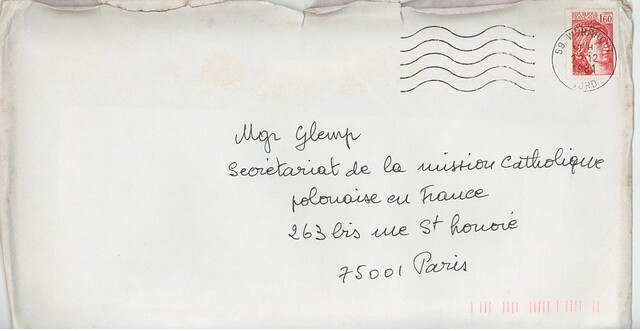 1,60
59
12
1981
NORD
Mgr Glemp
Secrétariat de la mission Catholique
polonaise en France
263 bis rue St honoré
75001 Paris